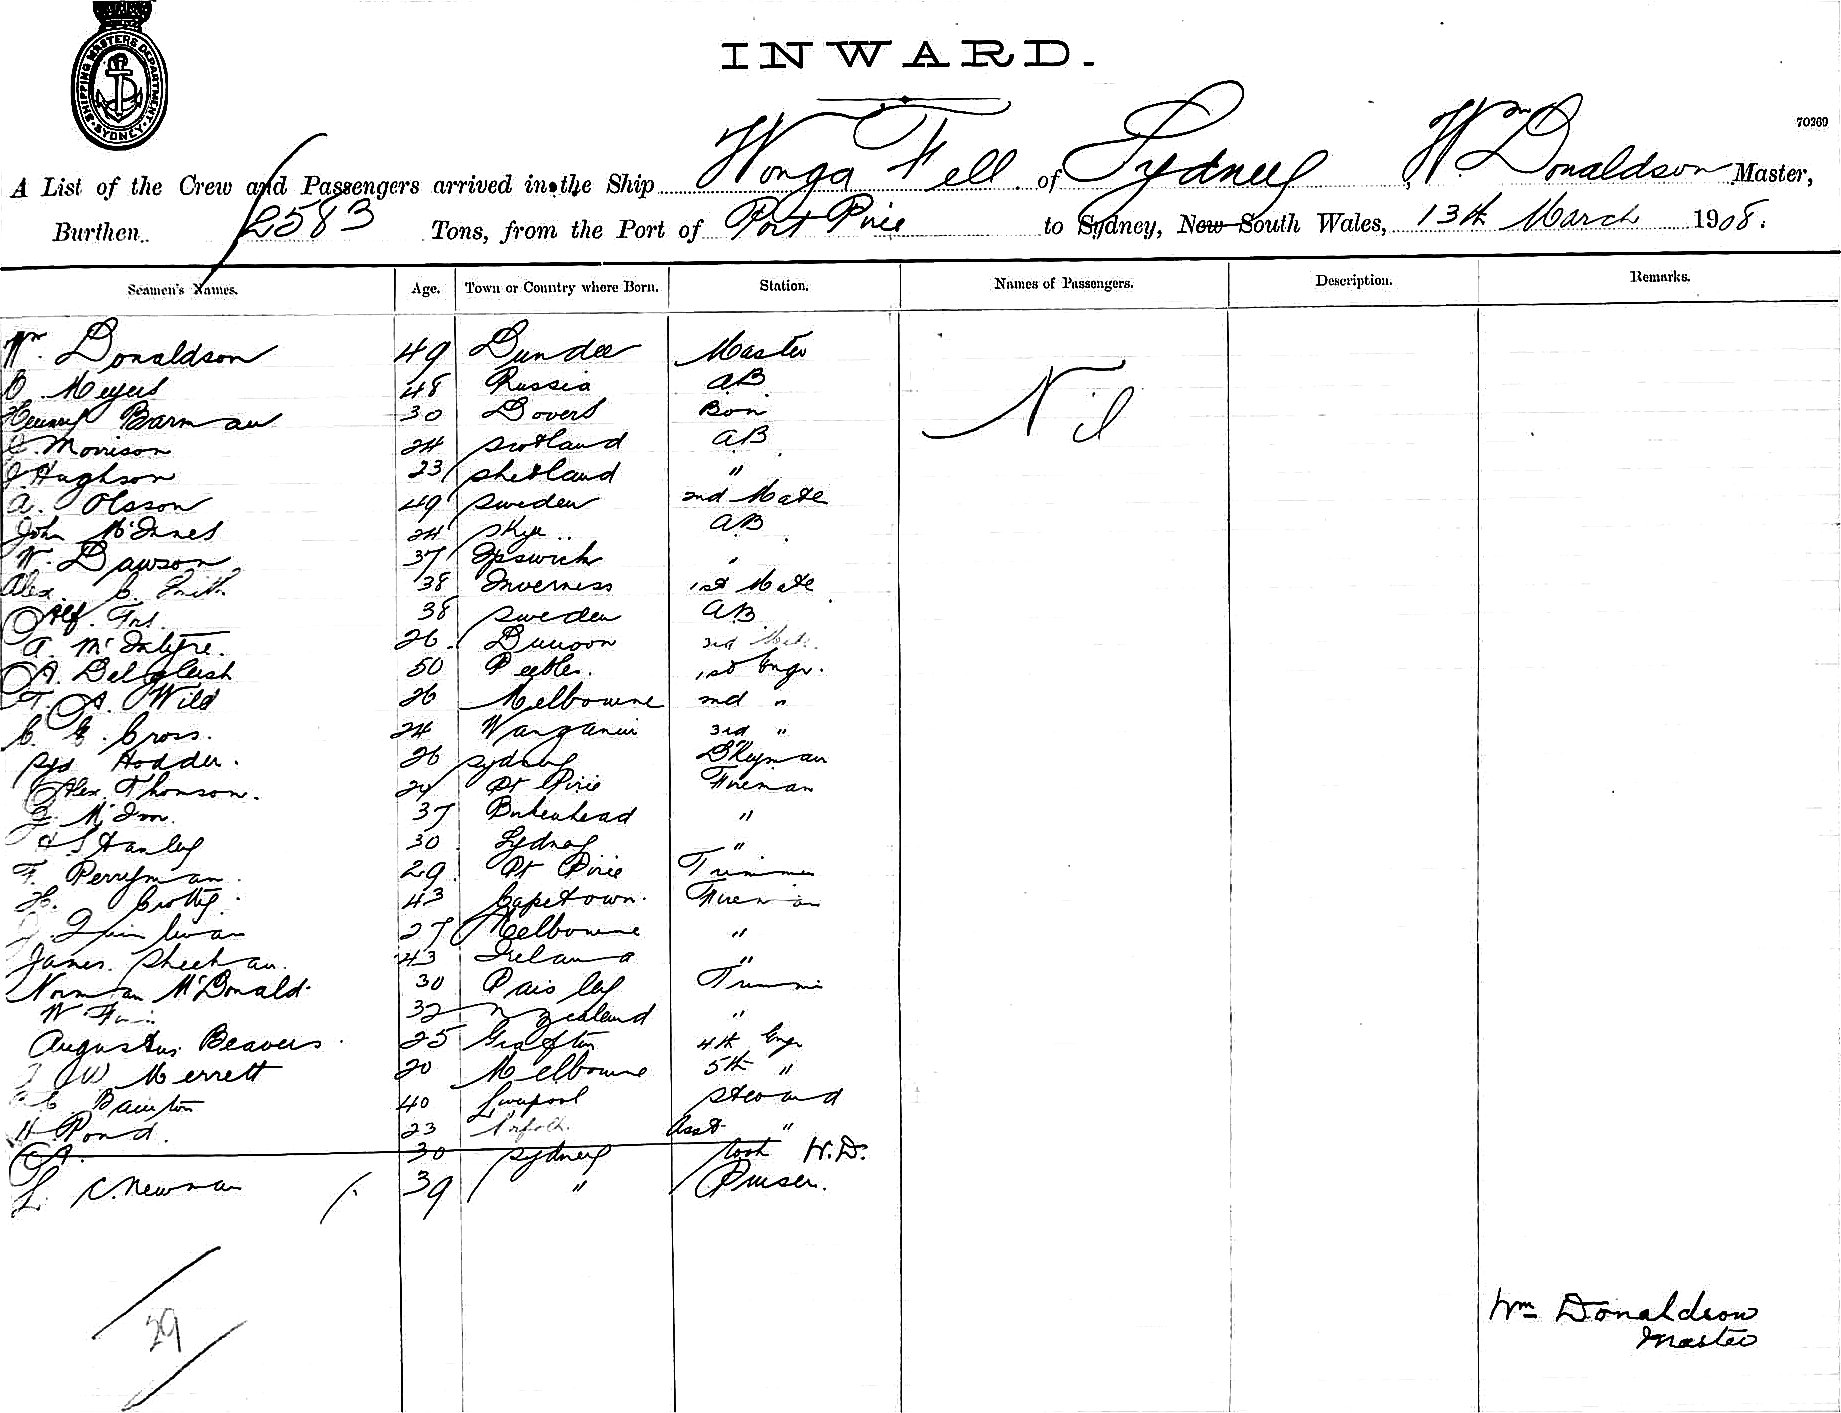 SHIPPING MASTERS DEPARTMENT
SYDNEY
INWARD.
70269
A List of the Crew and Passengers arrived in the Ship Wonga Fell of Sydney, Wm Donaldson Master,
Burthen 2583 Tons, from the Port of Port Pirie to Sydney, New South Wales, 13th March 1908.
Seamen's Names. Age. Town or Country where Born. Station. Names of Passengers. Description. Remarks.
Wm Donaldson 49 Dundee Master
Nil
Meyers 48 Russia AB
Henry Barman 30 Dovers
Morrison 24 Scotland AB
Hughson 23 Shetland "
A. Olsson 49 Sweden 2nd Mate
John McInnes 24 Skye AB
W. Dawson 37 Ipswich "
Alex. C. Smith 38 Inverness 1st Mate
Alf. 38 Sweden AB
A. McIntyre. 26 Dunoon 3rd Mate
A. Dalgleish 50 Peebles. 1st Engr.
F. A. Wild 26 Melbourne 2nd "
C. E. Cross. 24 Wanganui 3rd "
Hodder. 26 Sydney D'keyman
Alex. Thomson. 24 Pt Pirie Fireman
37 Birkenhead "
H Stanley 30 Sydney "
F. Perryman 29 Pt Pirie Trimmer
H. Crotty. 43 Capetown. Fireman
27 Melbourne "
James. Sheehan. 43 Ireland "
Norman McDonald. 30 Paisley Trimmer
W 32 N Zealand "
Augustus Beavers 25 Grafton 4th Engr
W Merrett 20 Melbourne 5th "
Bainton 40 Liverpool Steward
H Pond. 23 Norfolk. Asst "
A. 30 Sydney Cook W.D.
L. C. Newman 39 " Purser.
29
Wm Donaldson
Master